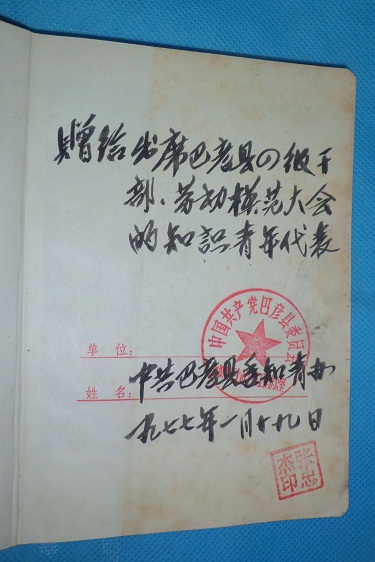 贈给出席巴彦县四级干
部、劳动模范大会
的知识青年代表
中国共产党巴彦县委员会
单位:
姓名:
中共巴彦县委知青办
一九七七年一月十九日
张忠
杰印